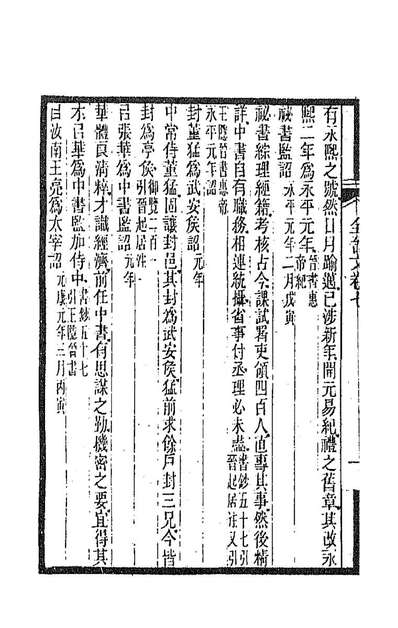 全晉文卷七
一
有永熙之號然日月踰邁已涉新年開元易紀禮之舊章其改永
熙二年爲永平元年晉書惠帝紀
祕書監詔永平元年二月戊寅
祕書綜理經籍考核古今課試署吏領四百人直專其事然後精
詳中書自有職務相連統攝省事付丞理必未盡書鈔五十七引晉起居注又引王隱晉書惠帝永平元年詔
封董猛爲武安侯詔元年
中常侍董猛固讓封邑其封爲武安侯猛前求餘戶封三兄今皆
封爲亭侯御覽二百一引晉起居注
以張華爲中書監詔元年
華體良清粹才識經濟前任中書有思謀之勤機密之要宜得其
才以華爲中書監加侍中書鈔五十七引王隱晉書
目汝南王亮爲太宰詔元康元年三月丙寅